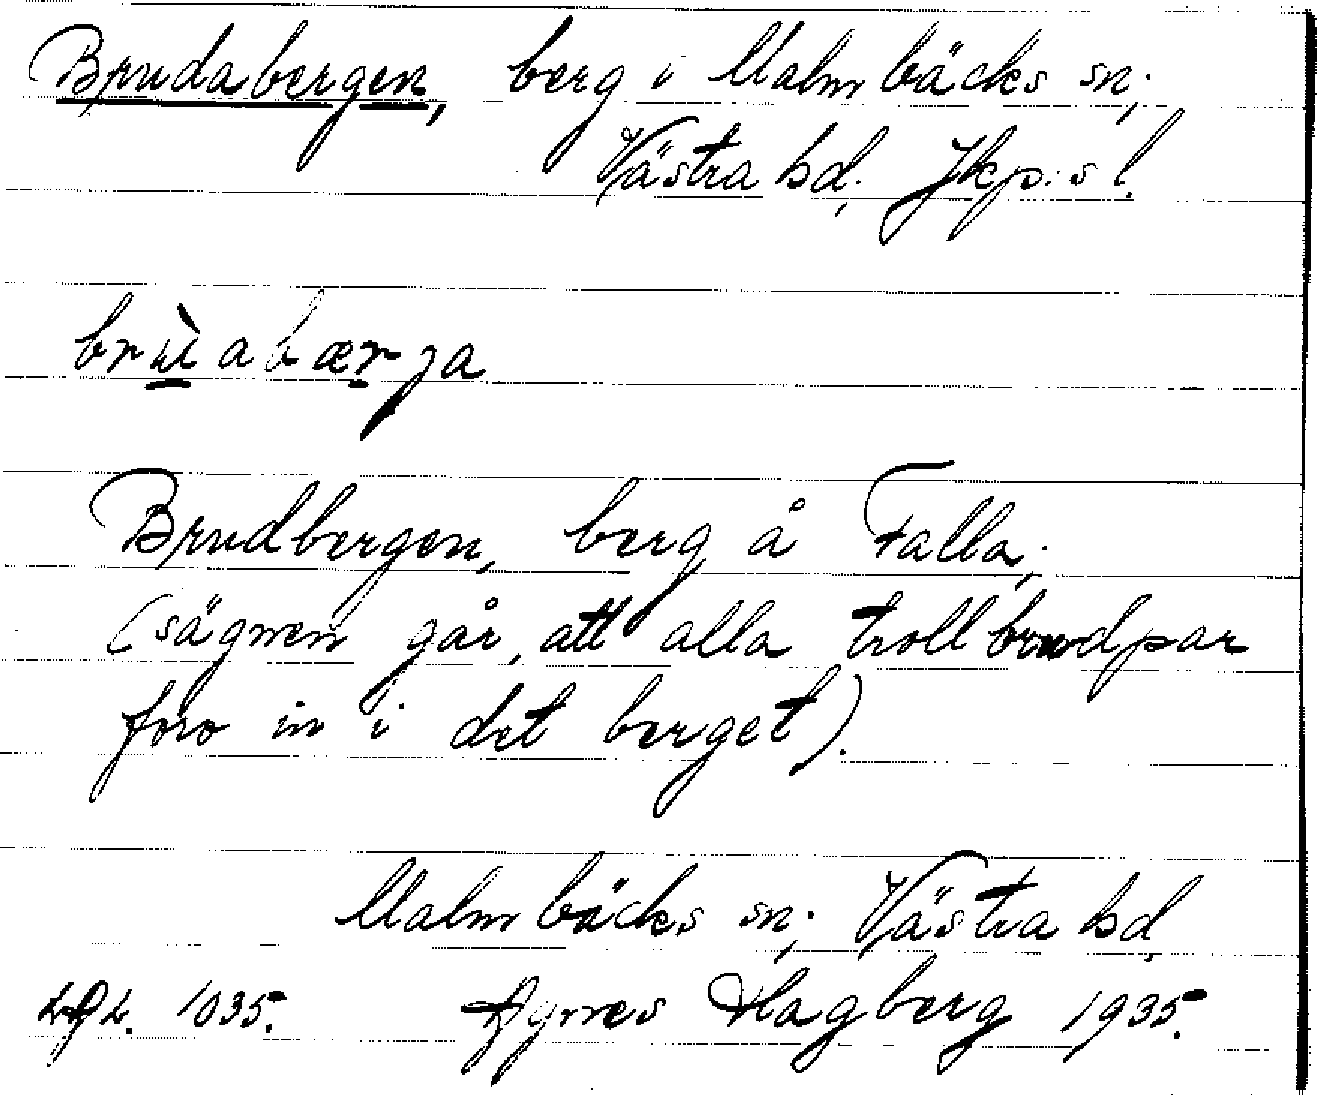 Brudabergen, berg i Malmbäcks sn;
Västra hd, Jkp:s l.
brùabærja
Brudbergen, berg å Falla;
(sägnen går, att alla trollbrudpar
foro in i det berget).
Malmbäcks sn; Västra hd,
1035. Agnes Hagberg 1935.